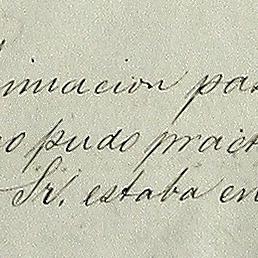 imacion pas
o pudo pract
Sr. estaba en